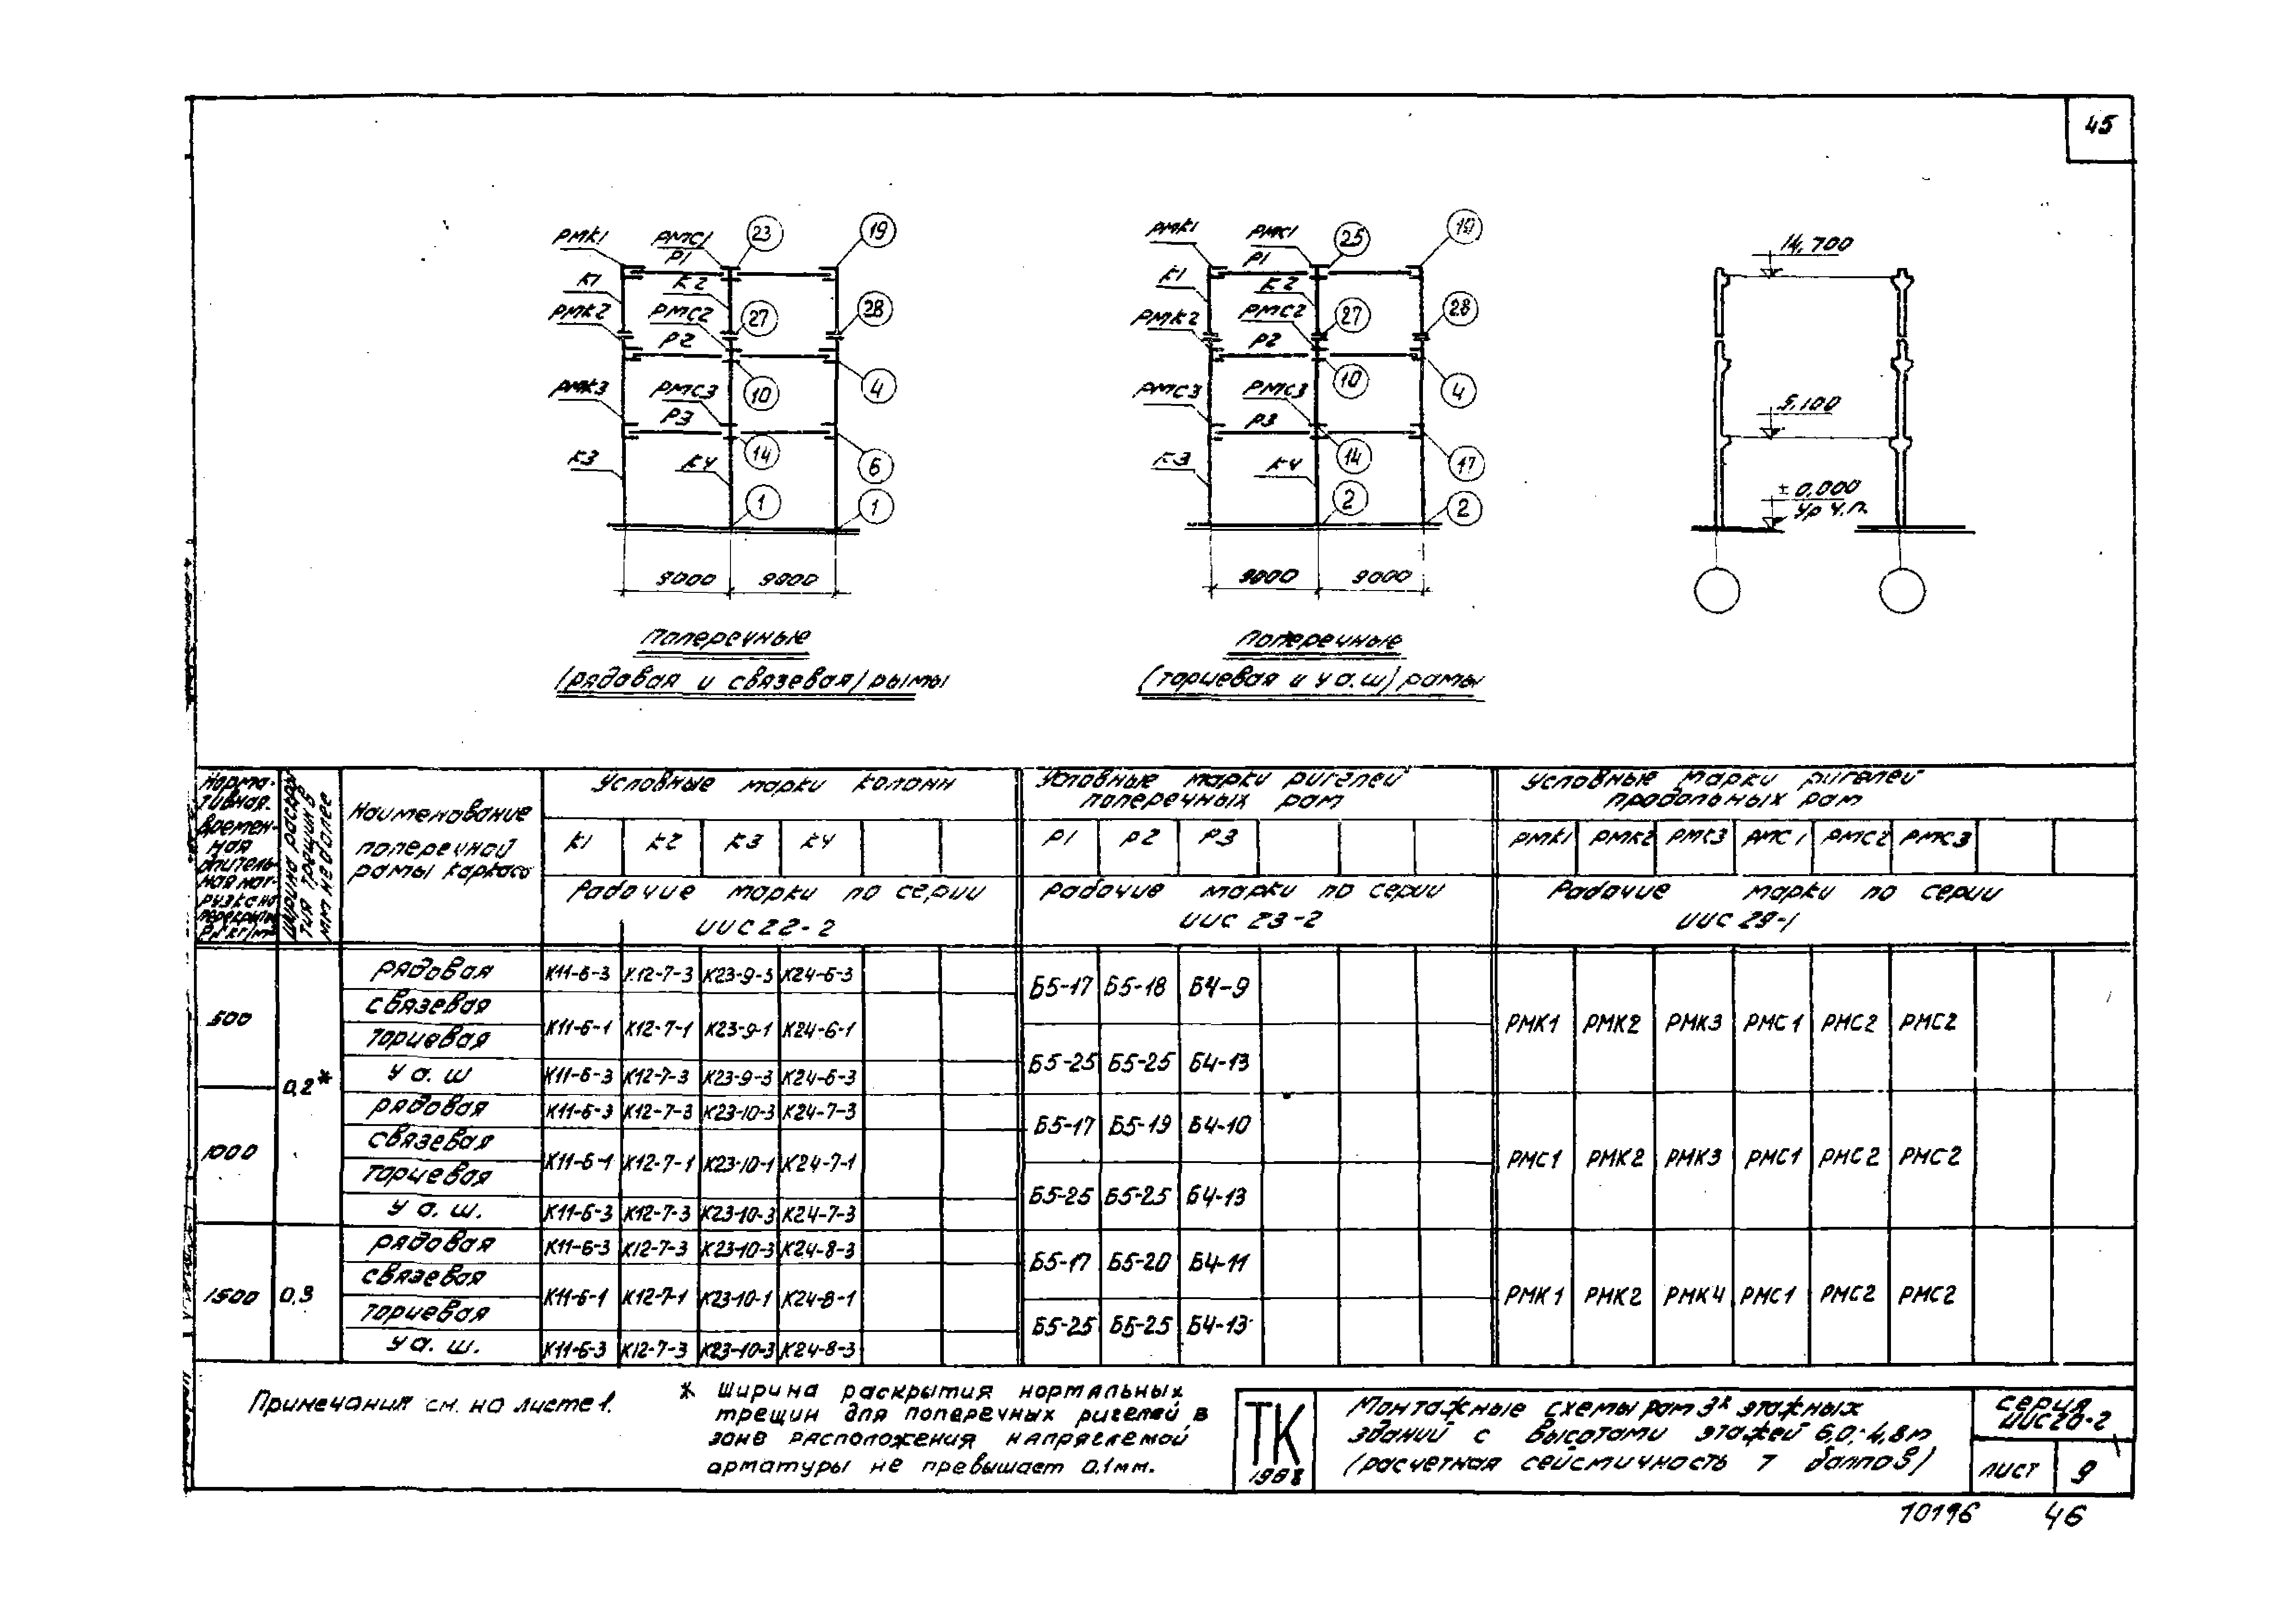 45
РМК1
РМС1
Р1
23
19
К1
К2
РМК2
РМС2
27
28
Р2
РМК3
РМС3
10
4
Р3
К3
К4
14
6
1
1
9000
9000
Поперечные
(рядовая и связевая) рымы
РМК1
РМК1
Р1
25
19
К1
К2
РМК2
РМС2
27
28
Р2
РМС3
РМС3
10
4
Р3
К3
К4
14
17
2
2
9000
9000
Поперечные
(торцевая и у а.ш) рамы
14,700
5,100
± 0,000
Ур ч.п.
Норма-
тивная
времен-
ная
длитель-
ная наг-
рузка на
перекрытие
Рн кг/м²
Ширина раскры-
тия трещин в
мм не более
Наименование
поперечной
рамы каркаса
Условные марки колонн
К1 К2 К3 К4
Рабочие марки по серии
ИИС22-2
Условные марки ригелей
поперечных рам
Р1 Р2 Р3
Рабочие марки по серии
ИИС 23-2
Условные марки ригелей
продольных рам
РМК1 РМК2 РМС3 РМС1 РМС2 РМС3
Рабочие марки по серии
ИИС 29-1
500
0,2*
рядовая К11-6-3 К12-7-3 К23-9-3 К24-6-3
связевая
торцевая
К11-6-1 К12-7-1 К23-9-1 К24-6-1
у а. ш К11-6-3 К12-7-3 К23-9-3 К24-6-3
Б5-17 Б5-18 Б4-9
Б5-25 Б5-25 Б4-13
РМК1 РМК2 РМК3 РМС1 РМС2 РМС2
1000
рядовая К11-6-3 К12-7-3 К23-10-3 К24-7-3
связевая
торцевая
К11-6-1 К12-7-1 К23-10-1 К24-7-1
у а. ш. К11-6-3 К12-7-3 К23-10-3 К24-7-3
Б5-17 Б5-19 Б4-10
Б5-25 Б5-25 Б4-13
РМС1 РМК2 РМК3 РМС1 РМС2 РМС2
1500 0,3
рядовая К11-6-3 К12-7-3 К23-10-3 К24-8-3
связевая
торцевая
К11-6-1 К12-7-1 К23-10-1 К24-8-1
у а. ш. К11-6-3 К12-7-3 К23-10-3 К24-8-3
Б5-17 Б5-20 Б4-11
Б5-25 Б5-25 Б4-13
РМК1 РМК2 РМК4 РМС1 РМС2 РМС2
Примечания см. на листе 1.
* Ширина раскрытия нормальных
трещин для поперечных ригелей в
зоне расположения напрягаемой
арматуры не превышает 0,1мм.
ТК
1968
Монтажные схемы рам 3х этажных
зданий с высотами этажей 6,0; 4,8м
(расчетная сейсмичность 7 баллов)
серия
ИИС20-2
лист 9
10196 46